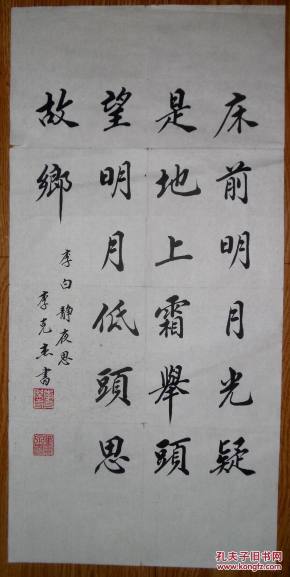 床前明月光疑
是地上霜舉頭
望明月低頭思
故鄉
李白靜夜思
李克杰書
孔夫子旧书网